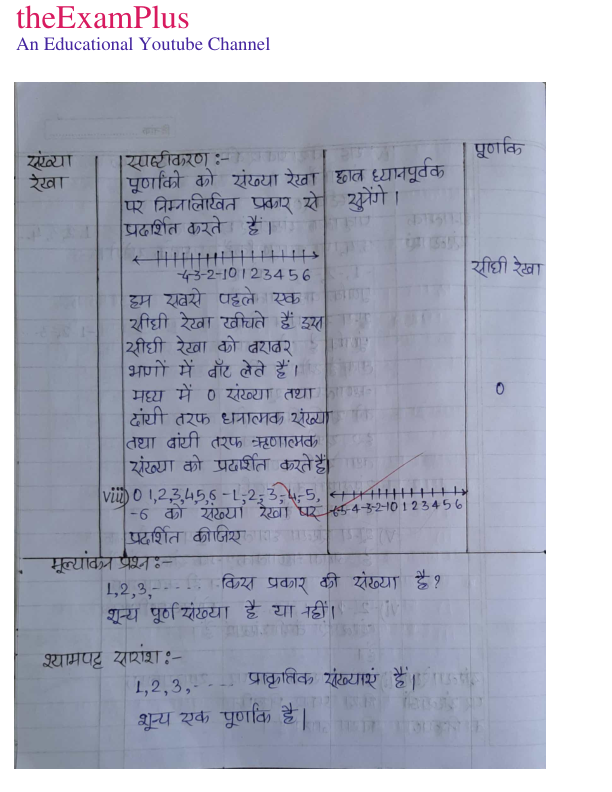 theExamPlus
An Educational Youtube Channel
संख्या
रेखा
स्पष्टीकरण :-
पूर्णांको को संख्या रेखा
पर निम्नलिखित प्रकार से
प्रदर्शित करते हैं।
-4-3-2-10 1 2 3 4 5 6
हम सबसे पहले एक
सीधी रेखा खींचते हैं इस
सीधी रेखा को बराबर
भागों में बाँट लेते हैं।
मध्य में 0 संख्या तथा
दांयी तरफ धनात्मक संख्या
तथा बांयी तरफ ऋणात्मक
संख्या को प्रदर्शित करते हैं।
viii) 0 1,2,3,4,5,6 -1,-2,-3,-4,-5,
-6 को संख्या रेखा पर
प्रदर्शित कीजिए
छात्र ध्यानपूर्वक
सुनेंगे।
-6-5-4-3-2-10 1 2 3 4 5 6
पूर्णांक
सीधी रेखा
0
मूल्यांकन प्रश्न :-
1,2,3,...... किस प्रकार की संख्या है?
शून्य पूर्ण संख्या है या नहीं।
श्यामपट्ट सारांश :-
1,2,3,..... प्राकृतिक संख्याएं हैं।
शून्य एक पूर्णांक है।